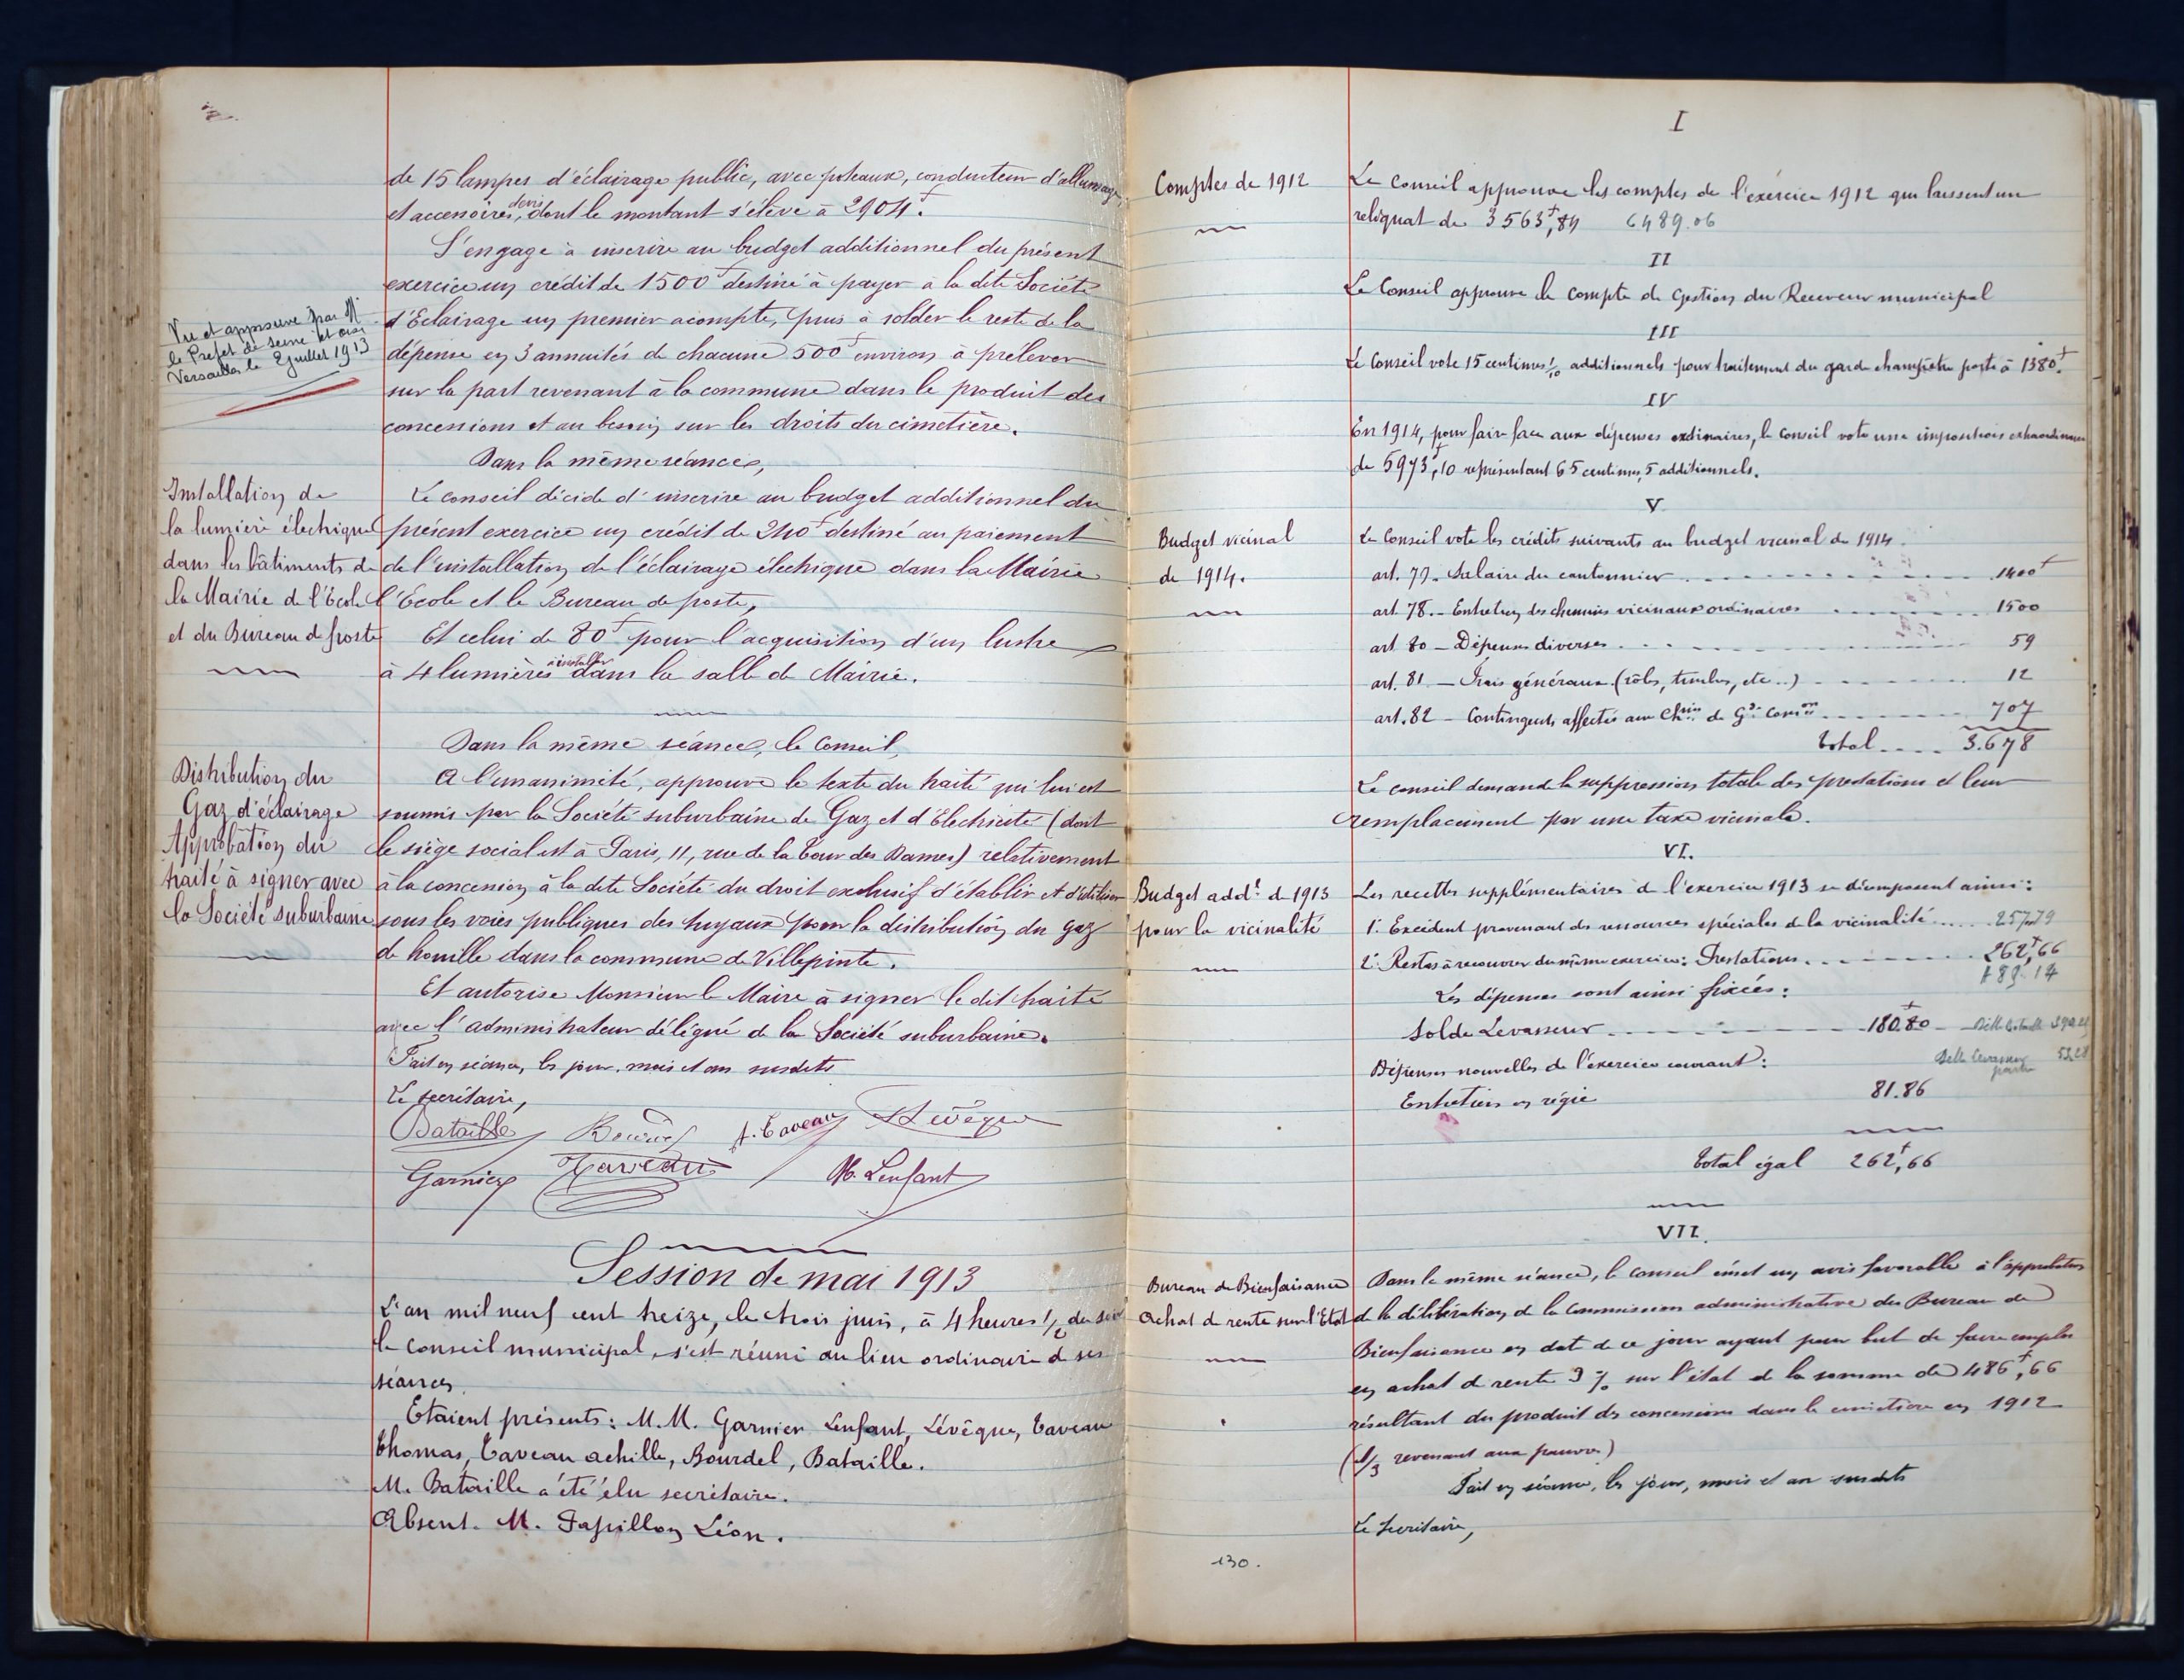 de 15 lampes d'éclairage public, avec poteaux, conducteur d'allumage
et accessoires, devis dont le montant s'élève à 2904f.
S'engage à inscrire au budget additionnel du présent
exercice un crédit de 1500f destiné à payer à la dite Société
d'Eclairage un premier acompte, puis à solder le reste de la
dépense en 3 annuités de chacune 500f environ à prélever
sur la part revenant à la commune dans le produit des
concessions et au besoin sur les droits du cimetière.
Vu et approuvé par M.
le Préfet de Seine et Oise
Versailles le 2 juillet 1913
Dans la même séance,
Installation de
la lumière électrique
dans les bâtiments de
la Mairie de l'École
et du Bureau de poste
Le conseil décide d'inscrire au budget additionnel du
présent exercice un crédit de 240f destiné au paiement
de l'installation de l'éclairage électrique dans la Mairie
l'École et le Bureau de poste,
Et celui de 80f pour l'acquisition d'un lustre
à 4 lumières à installer dans la salle de Mairie.
Dans la même séance, le Conseil,
Distribution du
Gaz d'éclairage
Approbation du
traité à signer avec
la Société suburbaine
A l'unanimité, approuve le texte du traité qui lui est
soumis par la Société suburbaine de Gaz et d'Electricité (dont
le siège social est à Paris, 11, rue de la Tour des Dames) relativement
à la concession à la dite Société du droit exclusif d'établir et d'utiliser
sous les voies publiques des tuyaux pour la distribution du gaz
de houille dans la commune de Villepinte.
Et autorise Monsieur le Maire à signer le dit traité
avec l'administrateur délégué de la Société suburbaine.
Fait en séance, les jour, mois et an susdits
Le secrétaire,
Bataille Bourdel A. Taveau Lévêque
Garnier Taveau Lenfant
Session de mai 1913
L'an mil neuf cent treize, le trois juin, à 4 heures 1/2 du soir
le Conseil municipal s'est réuni au lieu ordinaire de ses
séances.
Etaient présents: M.M. Garnier Lenfant, Lévêque, Taveau
Thomas, Taveau achille, Bourdel, Bataille.
M. Bataille a été élu secrétaire.
Absent. M. Papillon Léon.
I
Comptes de 1912
Le Conseil approuve les comptes de l'exercice 1912 qui laissent un
reliquat de 3563f,84 6489.06
II
Le Conseil approuve le compte de gestion du Receveur municipal
III
Le Conseil vote 15 centimes 1/10 additionnels pour traitement du garde champêtre porté à 1380f.
IV
En 1914, pour faire face aux dépenses ordinaires, le Conseil vote une imposition extraordinaire
de 5973f,10 représentant 65 centimes,5 additionnels.
V
Budget vicinal
de 1914.
Le Conseil vote les crédits suivants au budget vicinal de 1914
art. 77. Salaire du cantonnier 1400f
art. 78. - Entretien des chemins vicinaux ordinaires 1500
art 80 - Dépenses diverses 59
art. 81 - Frais généraux (rôles, timbres, etc..) 12
art. 82 - Contingents affectés aux Chins de Gde Comon 707
Total 3.678
Le conseil demande la suppression totale des prestations et leur
remplacement par une taxe vicinale.
VI.
Budget addl de 1913
pour la vicinalité
Les recettes supplémentaires de l'exercice 1913 se décomposent ainsi:
1º Excédent provenant des ressources spéciales de la vicinalité
2º Restes à recouvrer du même exercice: Prestations 262f,66
Les dépenses sont ainsi fixées:
Solde Levasseur 180f.80
Dépenses nouvelles de l'exercice courant:
Entretien en régie 81.86
Total égal 262f,66
VII.
Bureau de Bienfaisance
Achat de rente sur l'Etat
Dans la même séance, le conseil émet un avis favorable à l'approbation
de la délibération de la Commission administrative du Bureau de
Bienfaisance en date de ce jour ayant pour but de faire emploi
en achat de rente 3 % sur l'état de la somme de 486f,66
résultant du produit des concessions dans le cimetière en 1912
(1/3 revenant aux pauvres)
Fait en séance, les jour, mois et an susdits
Le Secrétaire,
130.